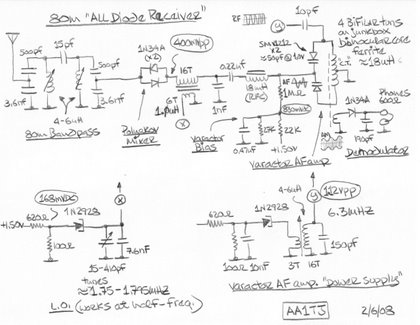 80m "ALL Diode Receiver"
RF
10pF
500pF
15pF
500pF
1N34A
(x2)
400mVpp
16T
0.22uF
18uH
(RFC)
x2
≈50pF @ 1.0V
4 bifilar turns
on junkbox
binocular core
ferrite
≈18uH
3.6nF
3.6nF
4-6uH
80m Bandpass
Polyakov
Mixer
6T
X
1nF
AF
1MΩ
850mVDC
Varactor
Bias
0.47uF
15K
22K
+1.50V
Varactor AF amp
AM
1N34A
Phones
600Ω
Demodulator
168mVDC
X
+1.50V
620Ω
1N2928
100Ω
15-410pF
7.6nF
tunes
≈1.75-1.795MHz
L.O. (works at half-freq.)
620Ω
1N2928
4-6uH
y
12Vpp
6.31MHz
100Ω
10nF
3T
16T
150pF
Varactor AF amp. "power supply"
AA1TJ
2/6/08